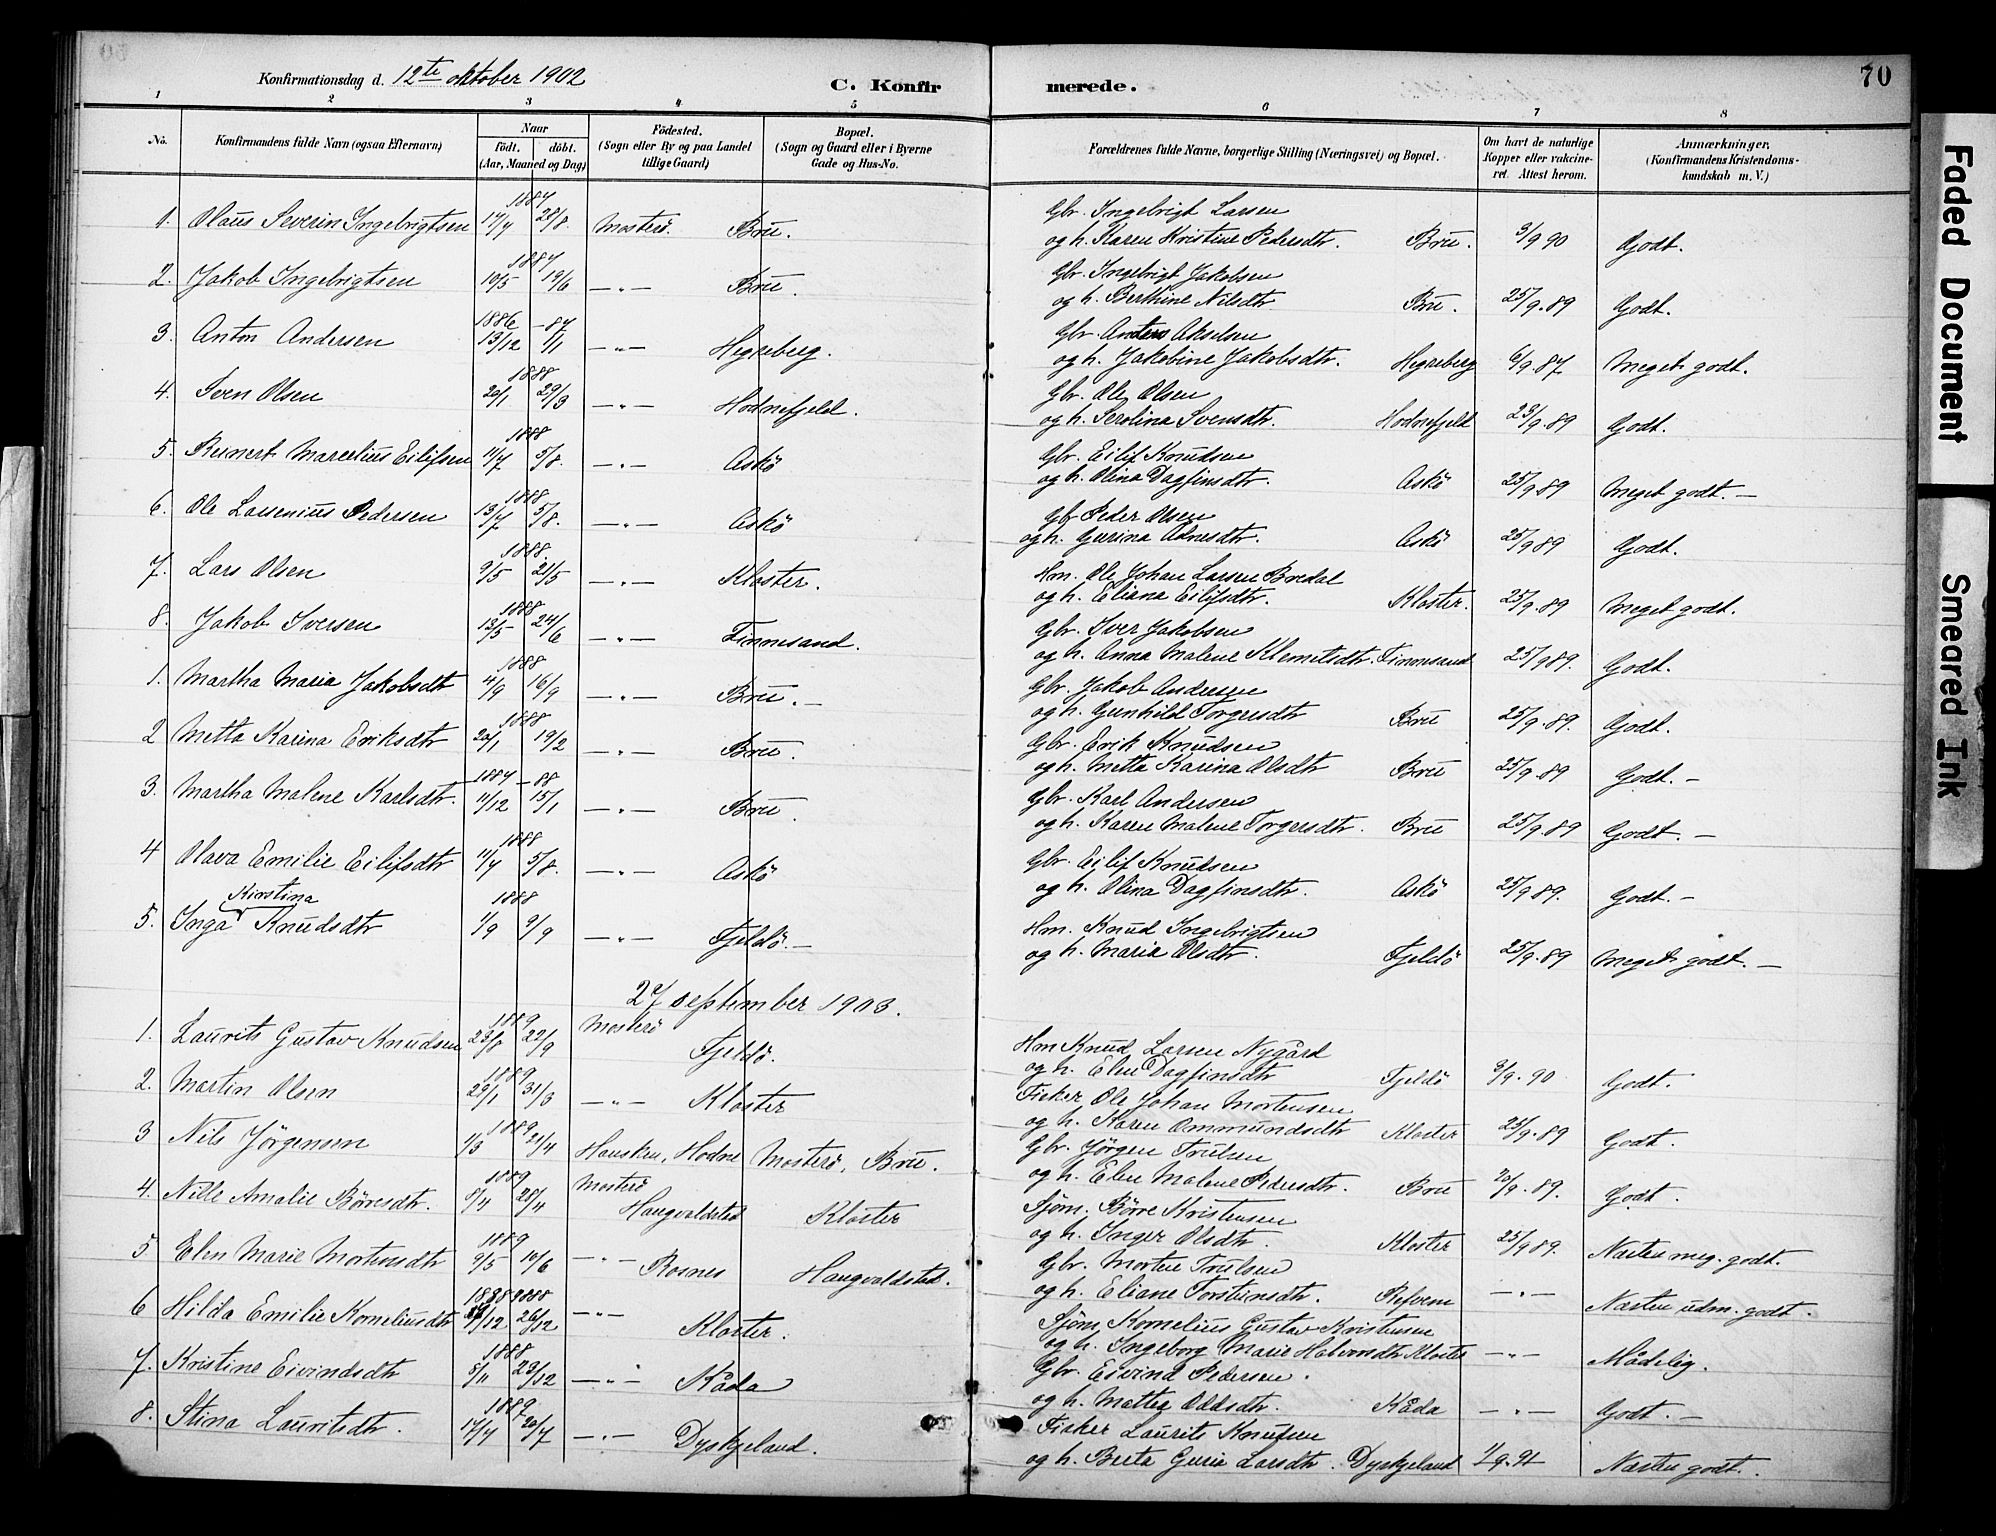 Konfirmationsdag d. 12te oktober 1902
C. Konfirmerede.
70
1 2 3 4 5 6 7 8
No. Konfirmandens fulde Navn (ogsaa Efternavn) Naar født. døbt. (Aar, Maaned og Dag) Födested. (Sogn eller By og paa Landet tillige Gaard) Bopæl. (Sogn og Gaard eller i Byerne Gade og Hus-No. Forældrenes fulde Navne, borgerlige Stilling (Næringsvei) og Bopæl. Om havt de naturlige Kopper eller vakcineret. Attest herom. Anmærkninger, (Konfirmandens Kristendomskundskab m. V.)
1887 Gbr. Ingebrigt Larsen
1. Olaus Severin Ingebrigtsen 17/7 28/8. Mosterö. Bru. og h. Karen Kristine Pedersdtr. Bru. 3/9 90 Godt.
1887 Gbr. Ingebrigt Jakobsen
2. Jakob Ingebrigtsen 10/5 19/6 —"— Bru. og h. Berthine Nilsdtr. Bru. 25/9.89 Godt.
1886 -87 Gbr. Anders Akselsen
3. Anton Andersen 13/12 1/1 —"— Hegreberg. og h. Jakobine Jakobsdtr. Hegreberg 6/9.87 Meget godt.
1888 Gbr. Ole Olsen
4. Sven Olsen 20/1 29/3 —"— Hodnefjeld. og h. Serolina Svensdtr. Hodnefjeld 23/9.89 Godt.
1888 Gbr. Eilif Knudsen
5. Reinert Marselius Eilifsen 11/7 5/8. —"— Askö og h. Olina Dagfinsdtr. Askö 25/9.89 Meget godt.—
1888. Gbr Peder Olsen
6. Ole Larsenius Pedersen 13/7 5/8. —"— Askö og h. Gurina Adnesdtr. Askö 25/9 89 Godt.
1888. Hm. Ole Johan Larsen Bredal
7. Lars Olsen 9/5 21/5 —"— Kloster. og h. Eliana Eilifsdtr. Kloster. 25/9.89 Meget godt.
1888 Gbr. Iver Jakobsen
8. Jakob Iversen 13/5 24/6 —"— Finnesand. og h. Anna Malene Klemetsdtr. Finnesand 25/9 89. Godt.
1888 Gbr. Jakob Andersen
1. Martha Maria Jakobsdtr 4/9 16/9 —"— Bru.— og h. Gunhild Torgersdtr Bru 25/9.89. Godt.
1888 Gbr. Erik Knudsen
2 Metta Karina Eriksdtr 20/1 19/2 —"— Bru. og h. Metta Karina Olsdtr Bru 25/9.89 Godt.—
1887 -88 Gbr. Karl Andersen
3. Martha Malene Karlsdtr. 11/12 15/1 —"— Bru. og h. Karen Malene Torgersdtr. Bru 25/9.89 Godt.—
1888 Gbr. Eilif Knudsen
4 Olava Emilie Eilifsdtr 11/7 5/8. —"— Askö og h. Olina Dagfinsdtr. Askö 25/9 89. Godt.—
Kirstina 1888 Hm. Knud Ingebrigtsen
5. Inga Knudsdtr 1/9 9/9 —"— Fjeldö.— og h. Maria Olsdtr. Fjeldö 25/9.89 Meget godt.—
27 september 1903.
1889 Mosterö Hm Knud Larsen Nygård
1. Laurits Gustav Knudsen 23/8 22/9 Fjeldö. og h. Elen Dagfinsdtr Fjeldö 3/9.90 Godt.
1889 Fisker Ole Johan Mortensen
2. Martin Olsen 29/1 31/3 —"— Kloster og h. Karen Ommundsdtr Kloster 25/9.89 Godt.
1889 Gbr. Jörgen Trulsen
3 Nils Jörgensen 1/3 21/4 Hausken, Hodne Mosterö, Bru. og h. Elen Malene Pedersdtr. Bru 26/9.89. Godt.
1889 Mosterö Sjöm. Börre Kristensen
4. Nille Amalie Börresdtr. 8/4 28/4 Haugvaldsted Kloster og h. Inger Olsdtr. Kloster 25/9 89. Næsten meg. godt.
1889 Gbr. Morten Trulsen
5 Elen Marie Mortensdtr 9/5 10/6 —"— Rosnes Haugvaldsted. og h. Eliane Torstensdtr. —"— Næsten udm. godt.
1888 1888 Sjöm. Kornelius Gustav Kristensen
6 Hilda Emilie Korneliusdtr 26/12 —"— Kloster. og h. Ingeborg Marie Halvorsdtr Kloster —"— Mådelig.
1888 Gbr. Eivind Pedersen.
7. Kristine Eivindsdtr 8/11 23/12 —"— Kåda og h. Mettea Oddsdtr. Kåda —"— Godt.—
1889 Fisker Laurits Knudsen
8. Stina Lauritsdtr. 17/7 20/7 —"— Dyskjeland. og h. Berta Guria Larsdtr. Dyskjeland 1/9.91 Næsten godt.
Faded Document
Smeared Ink